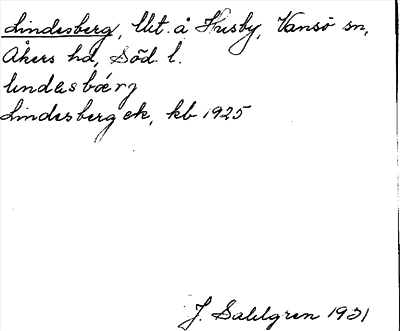 Lindesberg, lht. å Husby, Vansö sn,
Åkers hd, Söd. l.
lındəsbærj
Lindesberg ek, kb 1925
J. Sahlgren 1931